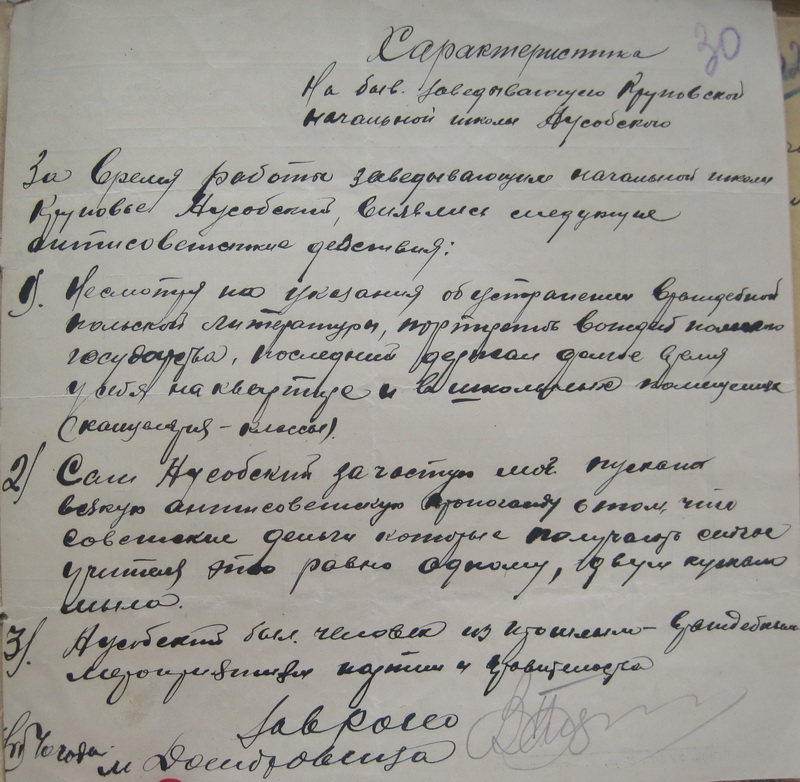 30
Характеристика
На быв. заведывающего Круповской
начальной школы Нусобского
За время работы заведывающим начальной школы
Круповье Нусобский, виявлись следующие
антисоветские действия:
1). Несмотря на указания об устранении враждебной
польской литературы, портретов вождей
государства, последний держал долгое время
у себя на квартире и в школьных помещениях
(канцелярия – классы).
2) Сам Нусобский зачастую мог пускать
всякую антисоветскую пропоганду о том, что
советские деньги которые получают сейчас
учителя это равно одному, двум кускам
мыла.
3). Нусобский был человек из прошлым – враждебным
мероприятиям партии и правительства
Завроно
40 года. м Домбровица